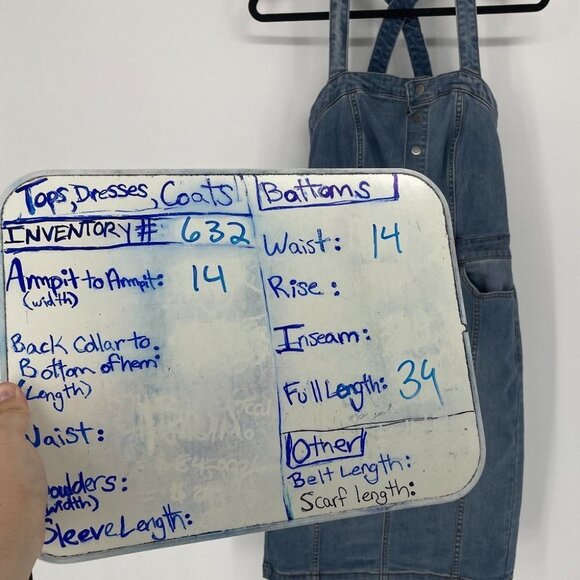 Tops, Dresses, Coats
INVENTORY# 632
Armpit to Armpit: 14
(width)
Back Collar to.
Bottom of hem:
(Length)
Waist:
Shoulders:
(width)
Sleeve Length:
Bottoms
Waist: 14
Rise:
Inseam:
Full Length: 34
Other
Belt Length:
Scarf length: